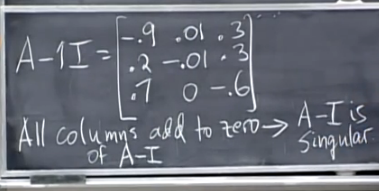 A-1I = [-.9 .01 .3
.2 -.01 .3
.7 0 -.6]
All columns add to zero → A-I is
of A-I singular